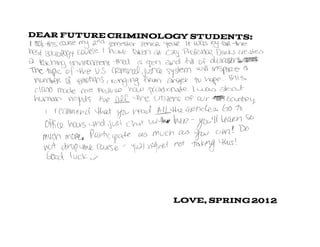 DEAR FUTURE CRIMINOLOGY STUDENTS:
I took this course my 2nd semester senior year. It was by far the
best sociology course I have taken at CSI. Professor Davis creates
a teaching environment that is open and full of
The topic of the U.S criminal justice system will inspire a
number of emotions, ranging from anger to hope. This
class made me realize how passionate I was about
human rights for all the citizens of our country
I recommend that you read ALL the articles. Go to
office hours and just chat with her - you'll learn so
much more. Participate as much as you can! Do
not drop the course - you'll regret not taking this!
Good luck
LOVE, SPRING 2012